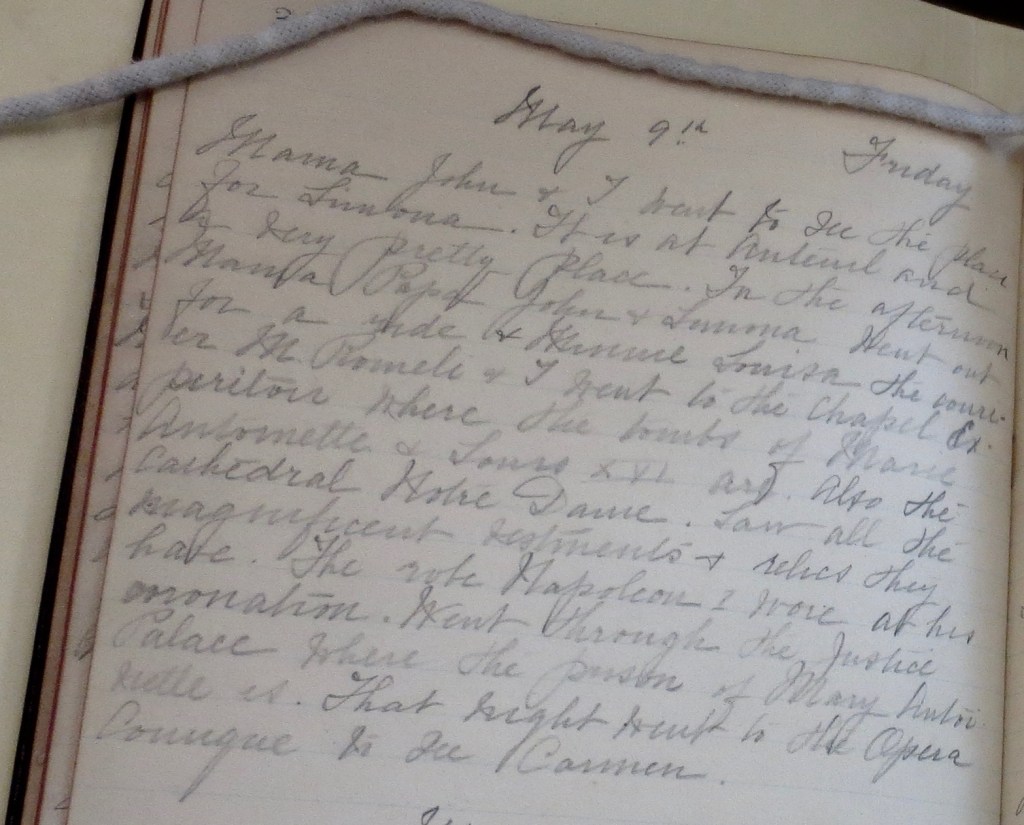 May 9th Friday
Mama John & I went to see the place
for Simona. It is at Auteuil and
a very pretty place. In the afternoon
Mama Papa John & Simona went out
for a ride & Minnie Louisa the couri-
er M Romeli & I went to the Chapel Ex-
peritoir where the tombs of Marie
Antoinette & Louis XVI are. Also the
Cathedral Notre Dame. Saw all the
magnificent vestments & relics they
have. The robe Napoleon I wore at his
coronation. Went through the Justice
Palace where the prison of Mary Antoi-
nette is. That night went to the Opera
Comique to see Carmen.